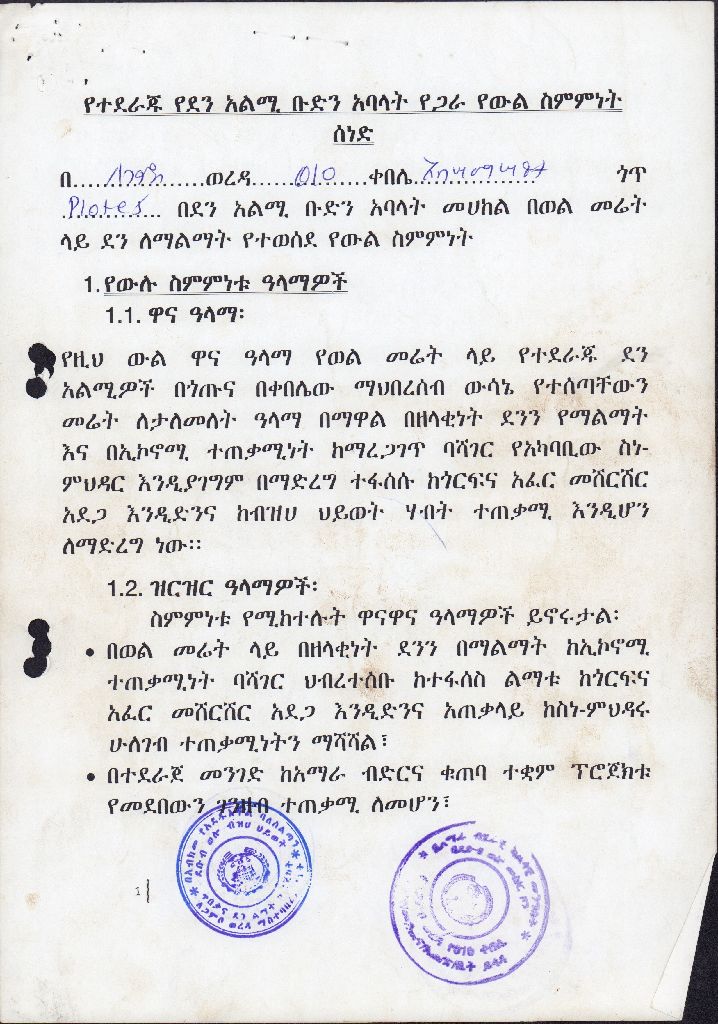 የተደራጁ የደን አልሚ ቡድን አባላት የጋራ የውል ስምምነት
ሰነድ
በ.... ለጋምቦ ......ወረዳ...... 010 ....ቀበሌ.. ጎጥ
Plote5 በደን አልሚ ቡድን አባላት መሀከል በወል መሬት
ላይ ደን ለማልማት የተወሰደ የውል ስምምነት
1. የውሉ ስምምነቱ ዓላማዎች
1.1. ዋና ዓላማ፡
የዚህ ውል ዋና ዓላማ የወል መሬት ላይ የተደራጁ ደን
አልሚዎች በጎጡና በቀበሌው ማህበረሰብ ውሳኔ የተሰጣቸውን
መሬት ለታለመለት ዓላማ በማዋል በዘላቂነት ደንን የማልማት
እና በኢኮኖሚ ተጠቃሚነት ከማረጋገጥ ባሻገር የአካባቢው ስነ-
ምህዳር እንዲያገግም በማድረግ ተፋሰሱ ከጎርፍና አፈር መሸርሸር
አደጋ እንዲድንና ከብዝሀ ህይወት ሃብት ተጠቃሚ እንዲሆን
ለማድረግ ነው፡፡
1.2. ዝርዝር ዓላማዎች፡
ስምምነቱ የሚከተሉት ዋናዋና ዓላማዎች ይኖሩታል፡
• በወል መሬት ላይ በዘላቂነት ደንን በማልማት ከኢኮኖሚ
ተጠቃሚነት ባሻገር ህብረተሰቡ ከተፋሰስ ልማቱ ከጎርፍና
አፈር መሸርሸር አደጋ እንዲድንና አጠቃላይ ከስነ-ምህዳሩ
ሁለገብ ተጠቃሚነትን ማሻሻል፣
• በተደራጀ መንገድ ከአማራ ብድርና ቁጠባ ተቋም ፕሮጀክቱ
የመደበውን ገንዘብ ተጠቃሚ ለመሆን፣
1